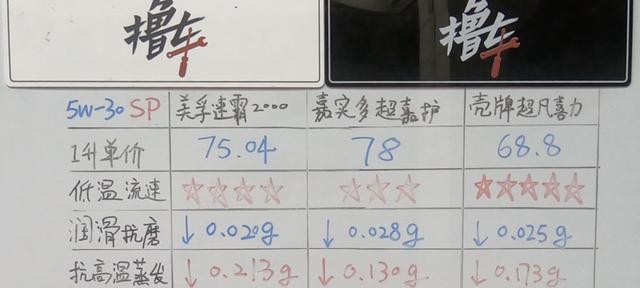 撸车 撸车
5W-30 SP 美孚速霸2000 嘉实多超嘉护 壳牌超凡喜力
1升单价 75.04 78 68.8
低温流速 ☆☆☆☆ ☆☆☆ ☆☆☆☆☆
润滑抗磨 ↓0.020g ↓0.028g ↓0.025g
抗高温蒸发 ↓0.213g ↓0.130g ↓0.173g